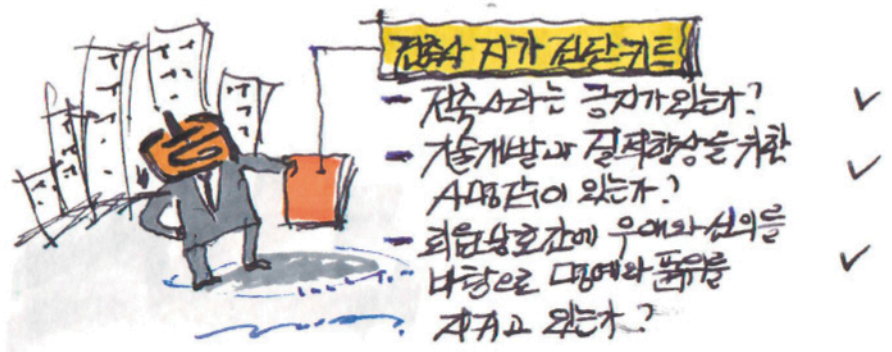 건축사 자가진단키트
- 건축사라는 긍지가 있는가? ✓
- 기술개발과 질적향상을 위한 ✓
사명감이 있는가?
- 회원상호간에 우애와 신의를
바탕으로 명예와 품위를 ✓
지키고 있는가?